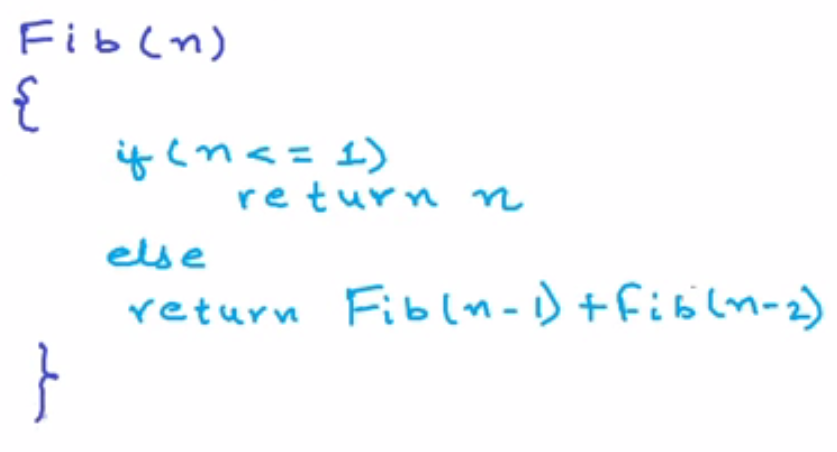 Fib(n)
{
if(n<=1)
return n
else
return Fib(n-1)+fib(n-2)
}